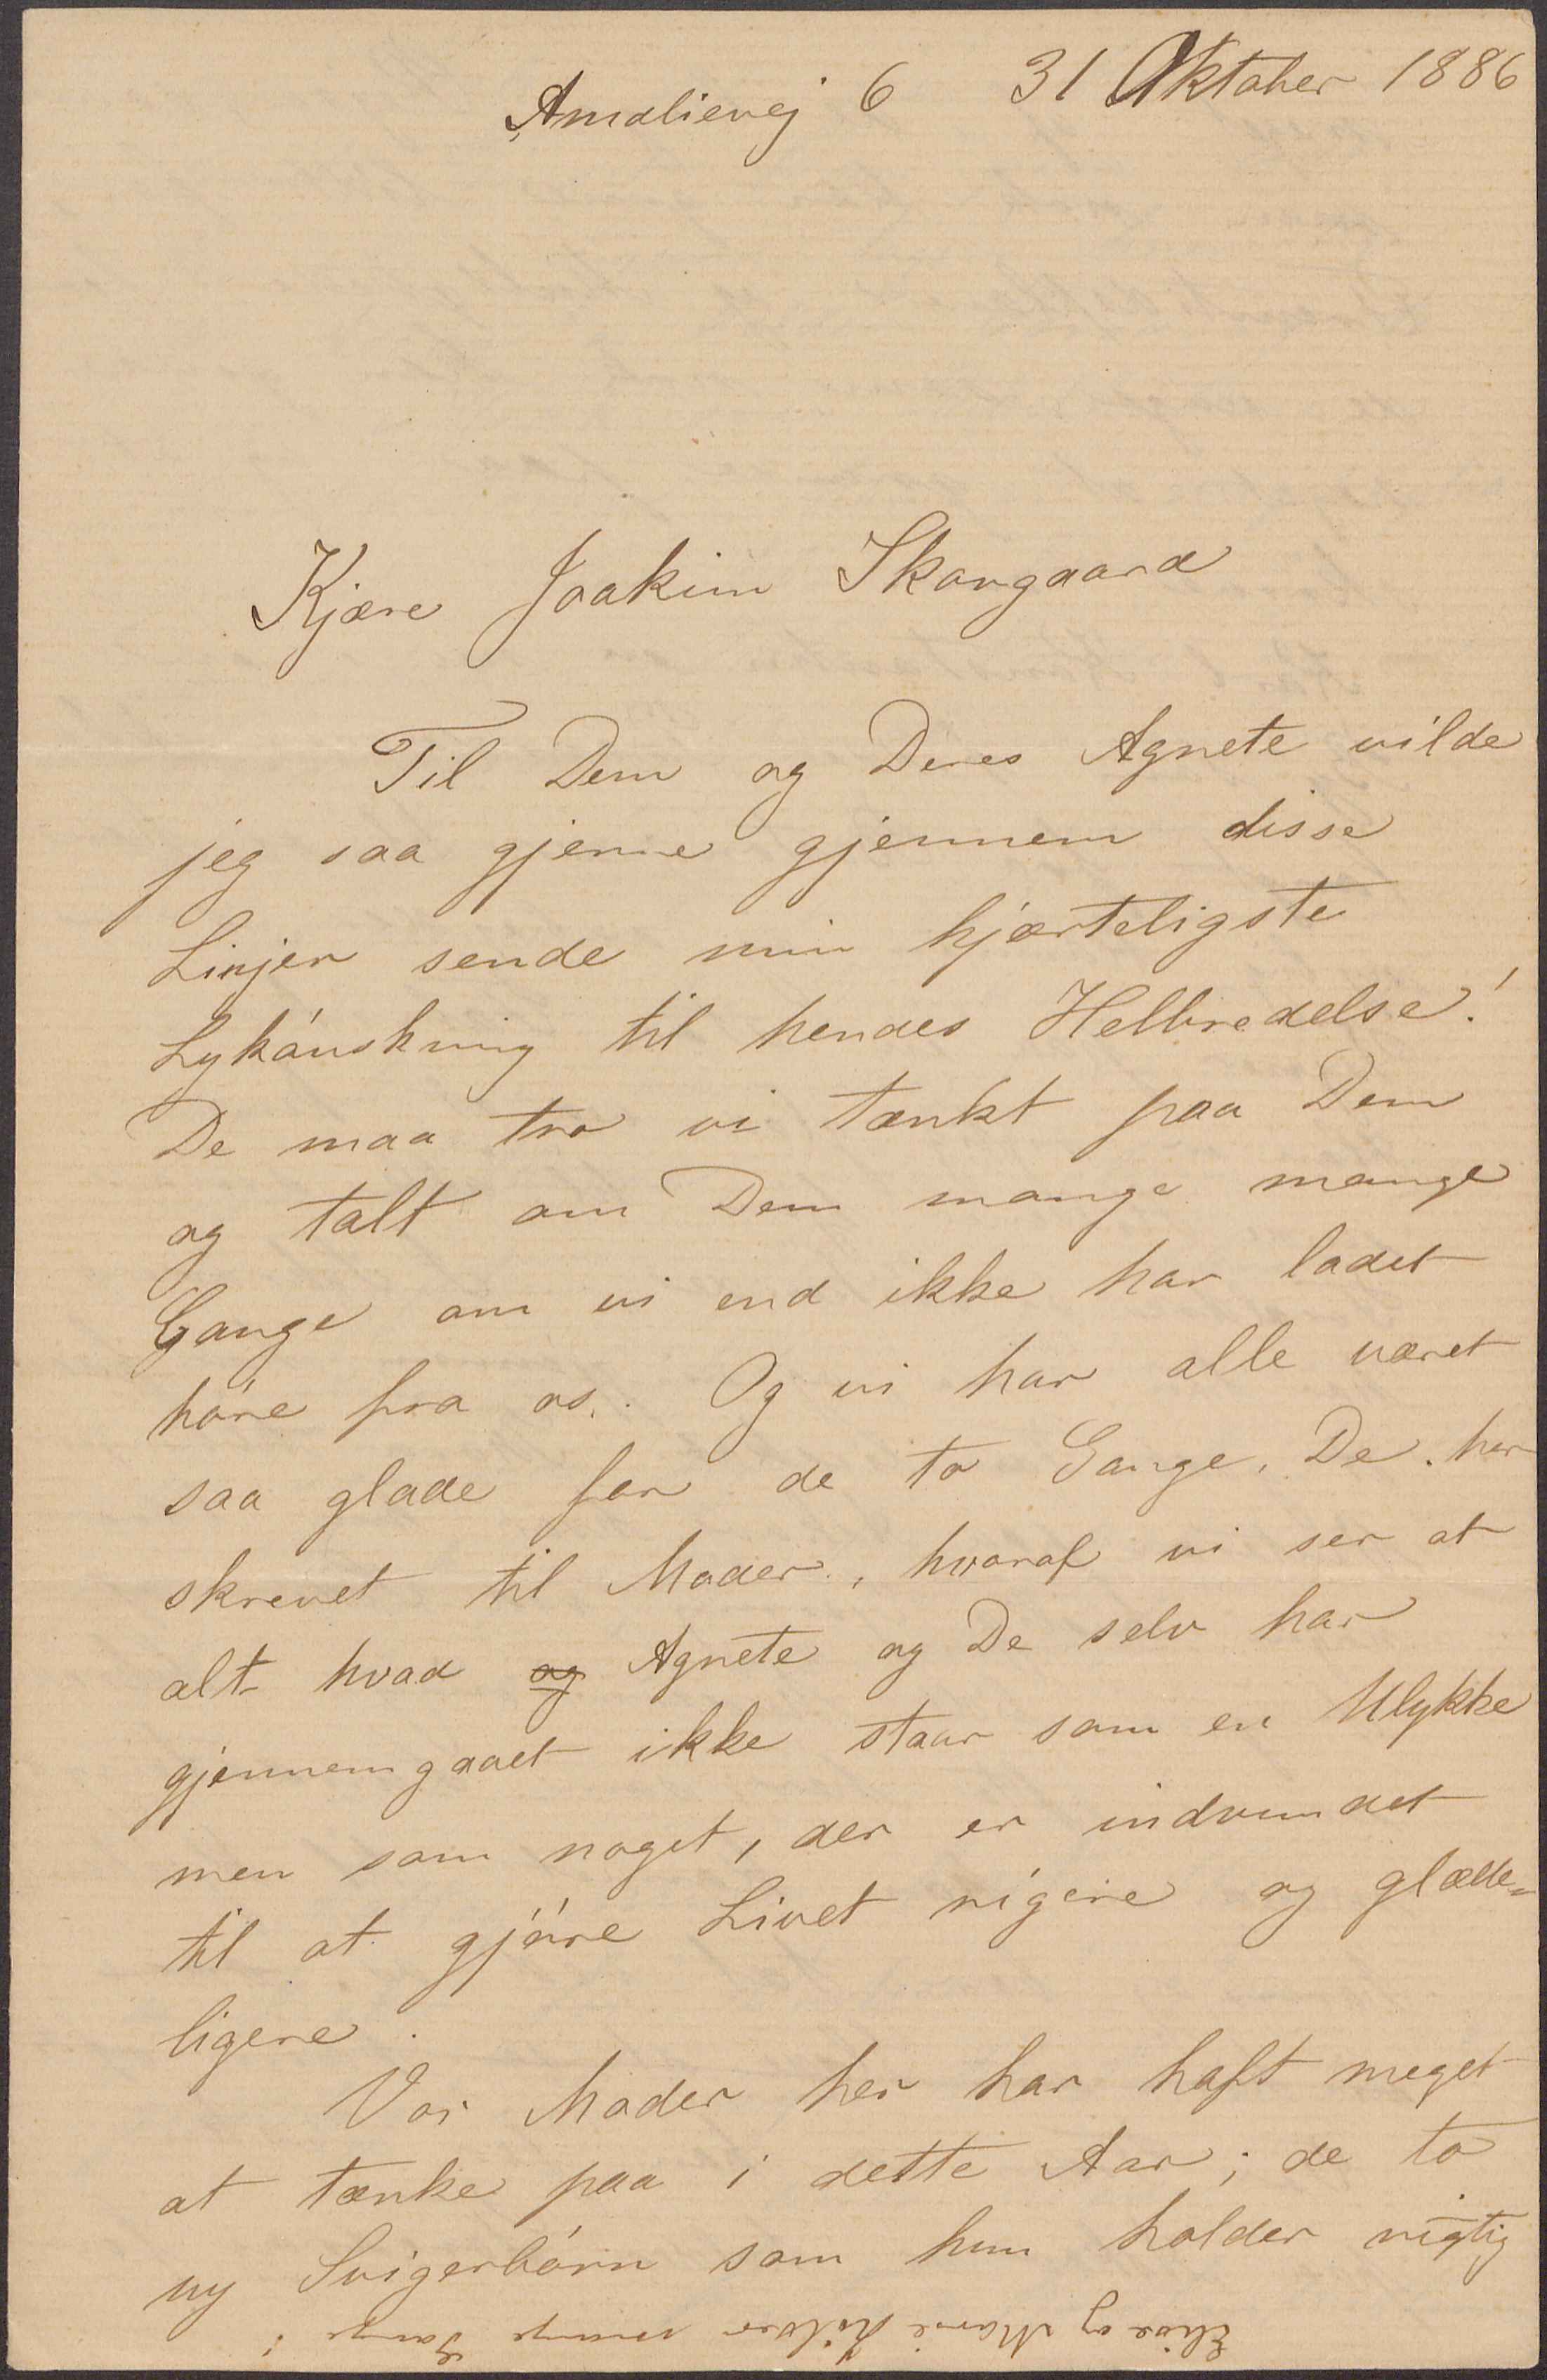 Amalievej 6 31 Oktober 1886
Kjære Joakim Skovgaard
Til Dem og Deres Agnete vilde
jeg saa gjerne gjennem disse
Linjer sende min hjærteligste
Lykónskning til hendes Helbredelse!
De maa tro vi tænkt paa Dem
og talt om Dem mange mange
Gange om vi end ikke har ladet
hóre fra os. Og vi har alle været
saa glade for de to Gange, De har
skrevet til Moder, hvoraf vi ser at
alt hvad og Agnete og De selv har
gjennemgaaet ikke staar som en Ulykke
men som noget, der er indvundet
til at gjóre Livet rigere og glæde=
ligere.
Vor Moder her har haft meget
at tænke paa i dette Aar; de to
ny Svigerbórn som hun holder rigtig
Elise og Marie hilser mange Gange